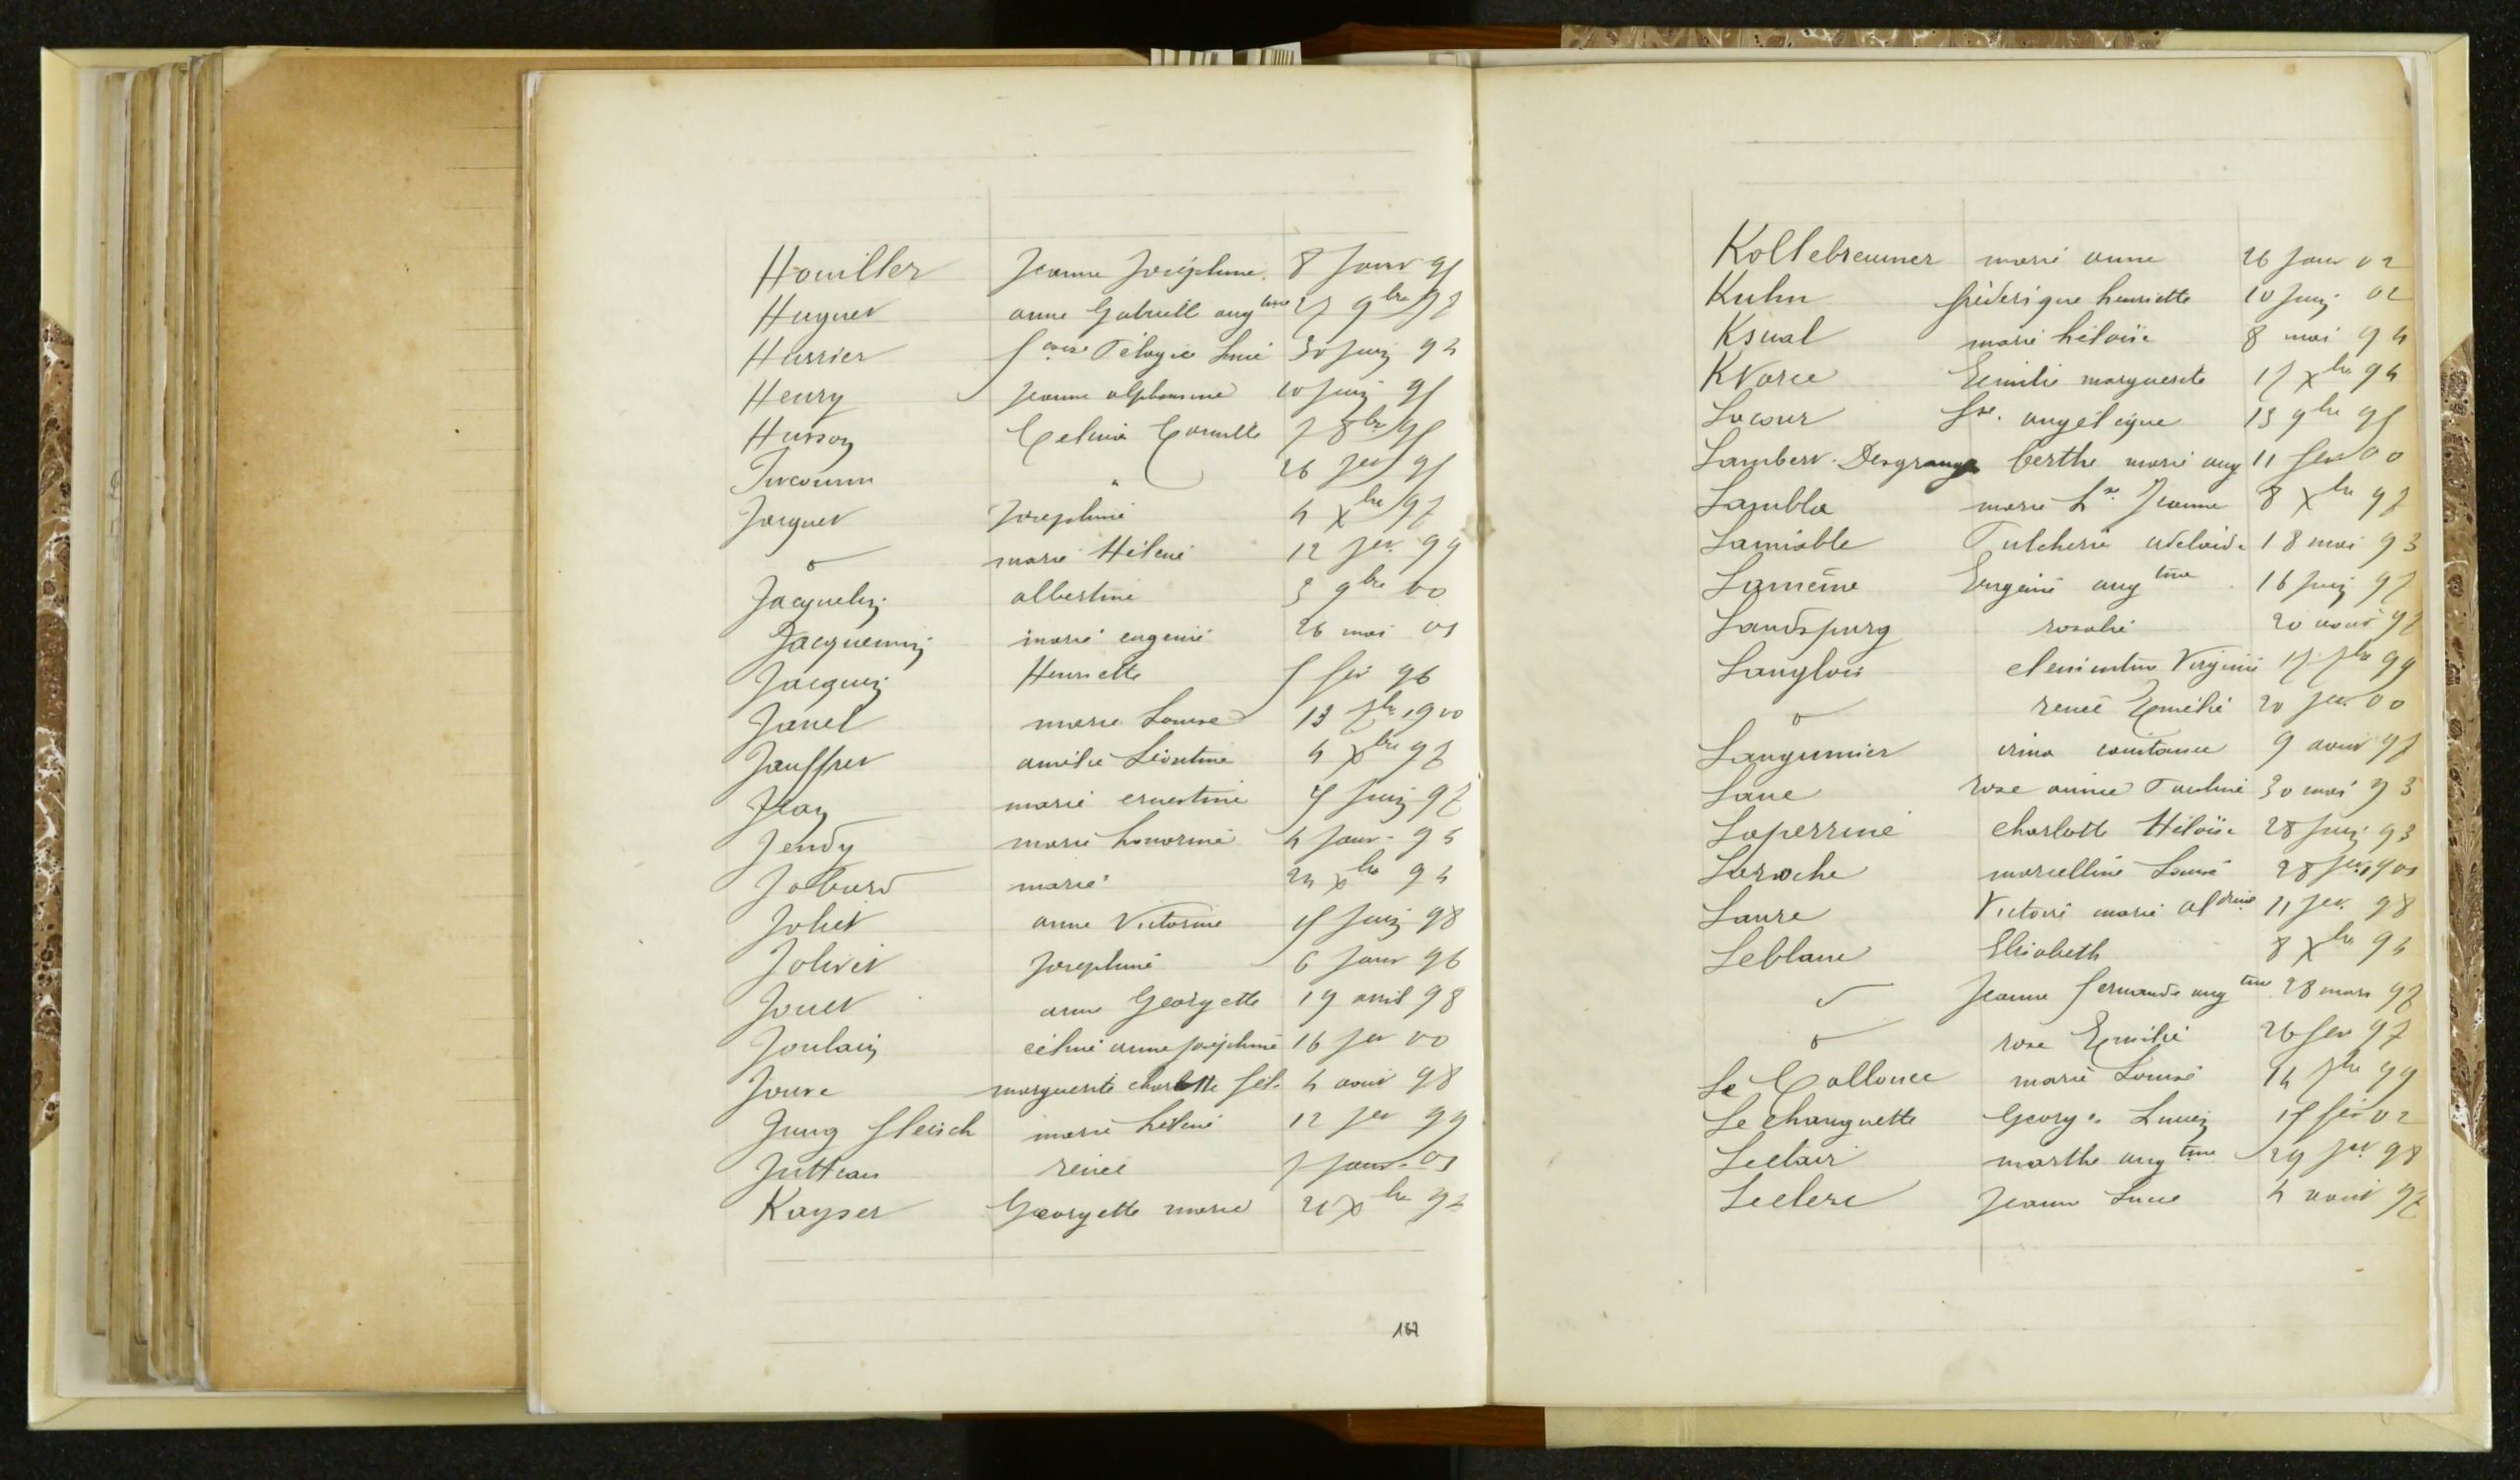 Houiller Jeanne Joséphine 8 Janv 95
Huguet anne Gabrielle aug tine 27 9bre 97
Hurrier Pélagie 30 Juin 94
Henry Jeanne alphonsine 10 Juin 95
Husson Celina Camille 7 8bre 95
26 fev 95
Jacquet Joséphine 4 Xbre 97
d° marie Hélène 12 fev. 99
Jacquelin albertine 3 9bre 00
Jacquemin marie eugénie 26 mai 01
Jacquin Henriette 5 fév 96
Janel marie Louise 13 7bre 1900
Jauffret amélie Léontine 4 Xbre 97
Jean marie ernestine 4 Juin 97
Jendy marie honorine 4 Janv. 95
Jobard marie 24 Xbre 94
Joliet anne Victorine 15 Juin 98
Jolivet Joséphine 6 Janv 96
Jouet anne Georgette 19 avril 98
Joulain céline anne joséphine 16 fev 00
Jouve marguerite charlotte fél. 4 aout 98
Jung fleisch marie hélène 12 fev 99
Jutteau renée 7 janv. 01
Kayser Georgette marie 21 Xbre 94
167
Kollebrenner marie anne 26 Janv 02
Kuhn fréderique henriette 10 Juin 02
Ksual marie héloïse 8 mai 94
KVoree Emilie marguerite 17 Xbre 94
Lacour fse. angélique 13 9bre 95
Lambert-Desgranges berthe marie aug 11 fev 00
Lambla marie Lse Jeanne 8 Xbre 97
Lamiable Pulcherie adelaïde 18 mai 93
Lamème Eugénie aug tine 16 Juin 97
Landspurg rosalie 20 aout 97
Langlois clémentine Virginie 17 7bre 99
d° renée Emélie 20 fev. 00
Langumier irma constance 9 aout 97
Lane rose annie Pauline 30 mai 93
Laperrine charlotte Héloïse 28 Juin 93
Laroche marcelline Louise 28 fev. 1901
Laure Victoire marie al drine 11 fev. 98
Leblanc Elisabeth 8 Xbre 94
d° Jeanne fernande aug tine 28 mars 97
d° rose Emilie 26 fev 97
Le Callonec marie Louise 14 7bre 99
Lechanguette 15 fév 02
Leclair marthe aug tine 29 fev 98
Leclerc Jeanne Lucie 4 aout 97